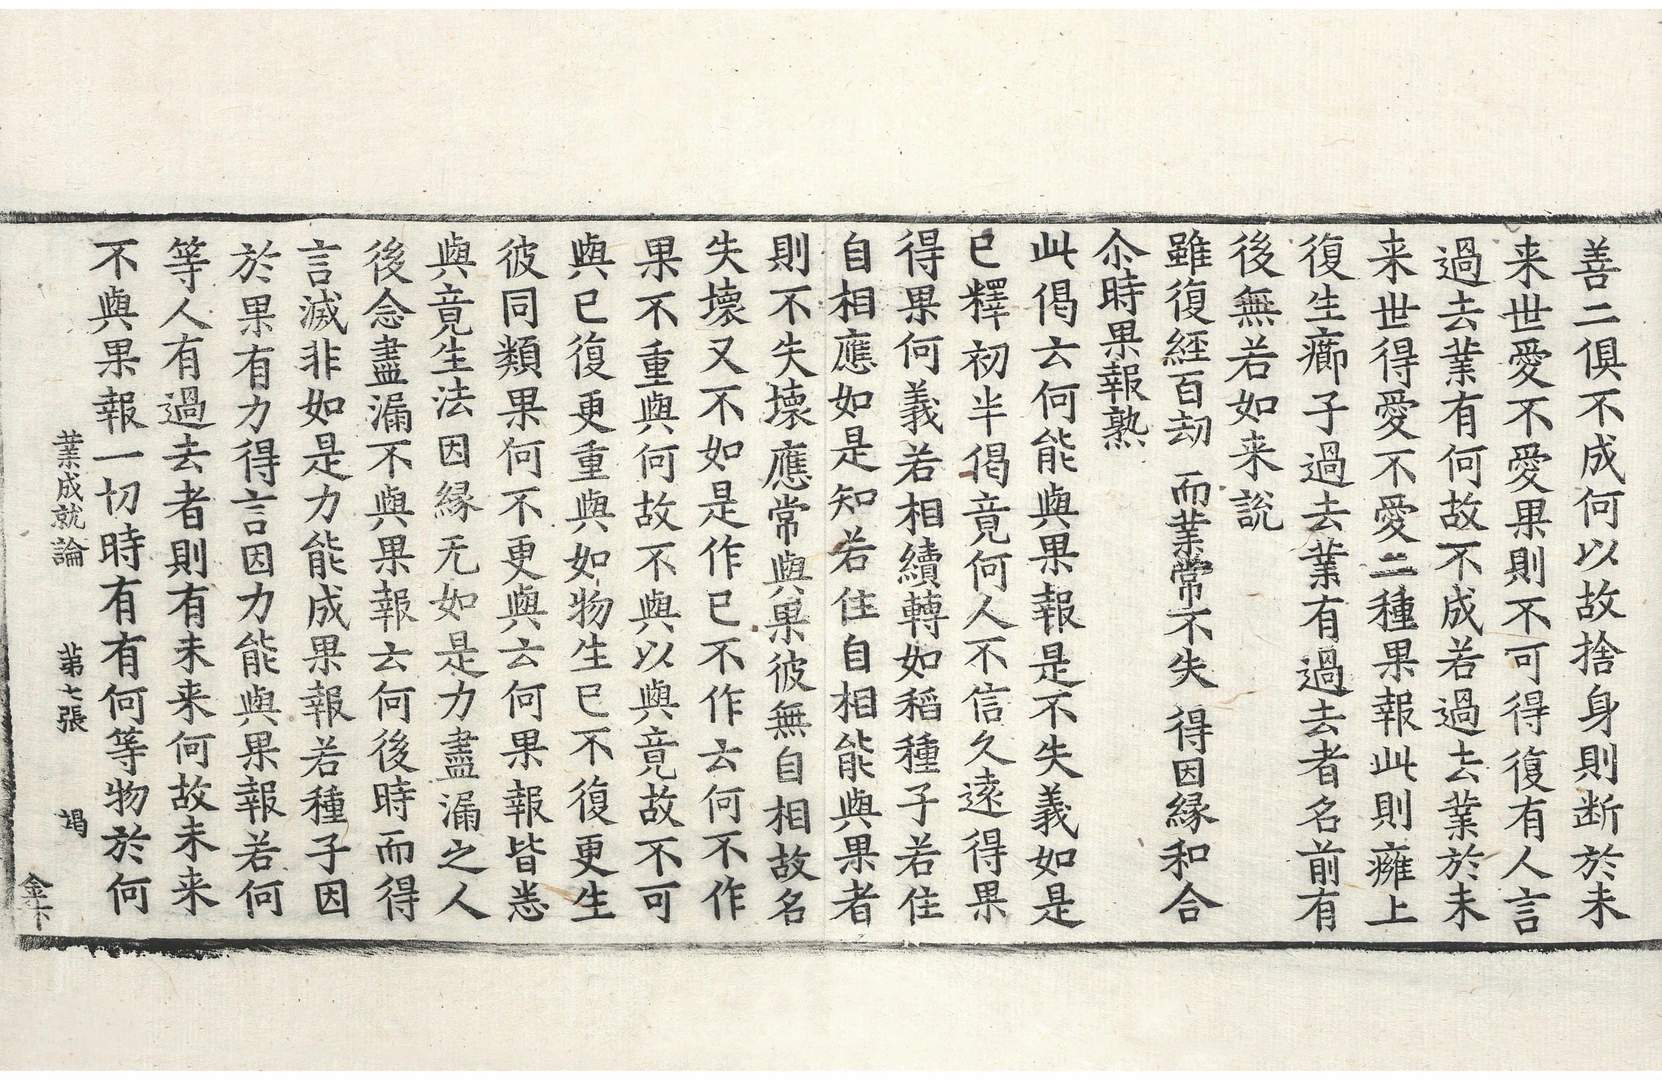 善二俱不成何以故捨身則断於未
来世愛不愛果則不可得復有人言
過去業有何故不成若過去業於未
来世得愛不愛二種果報此則癰上
復生癤子過去業有過去者名前有
後無若如来說
雖復經百劫 而業常不失 得因緣和合
尒時果報熟
此偈云何能與果報是不失義如是
已釋初半偈竟何人不信久遠得果
得果何義若相續轉如稻種子若住
自相應如是知若住自相能與果者
則不失壞應常與果彼無自相故名
失壞又不如是作已不作云何不作
果不重與何故不與以與竟故不可
與已復更重與如物生已不復更生
彼同類果何不更與云何果報皆悉
與竟生法因緣无如是力盡漏之人
後念盡漏不與果報云何後時而得
言滅非如是力能成果報若種子因
於果有力得言因力能與果報若何
等人有過去者則有未来何故未来
不與果報一切時有有何等物於何
業成就論 第七張 竭